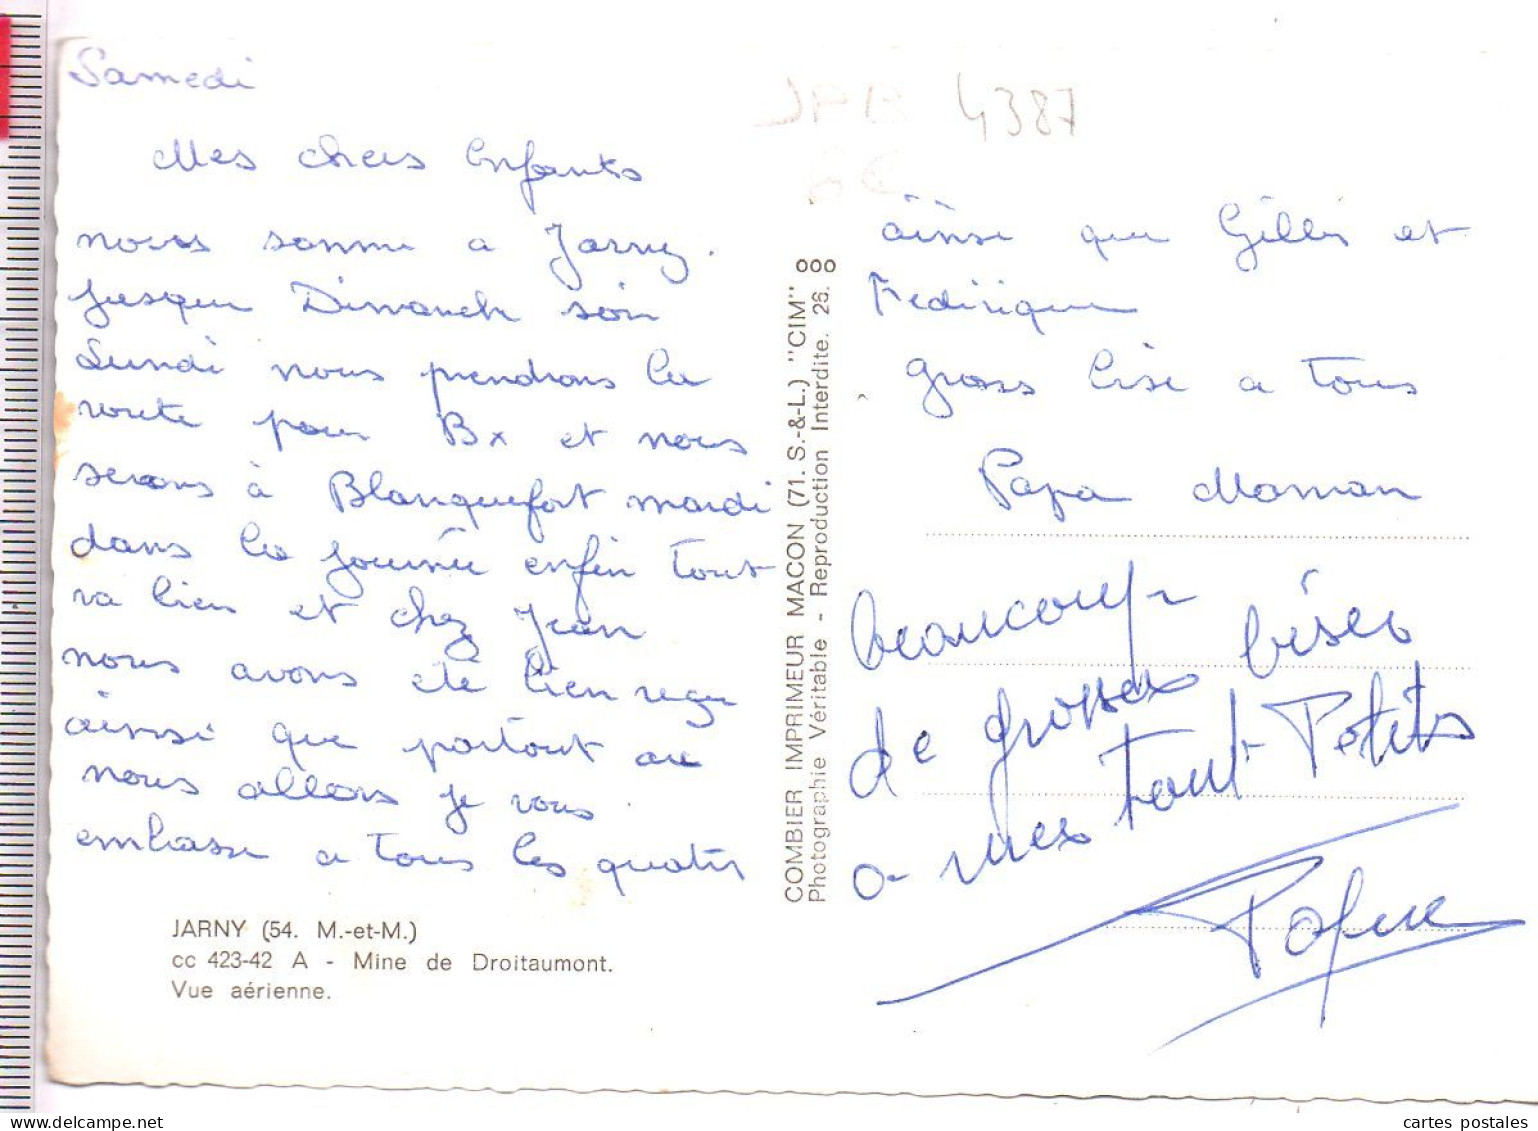 Samedi
Mes chers Enfants
nous somme a Jarny.
jusque Dimanche soir
Lundi nous prendrons la
route pour Bx et nous
serons à Blanquefort mardi
dans la journée enfin tout
va bien et chez Jean
nous avons été bien reçu
ainsi que partout ou
nous allons je vous
embrasse a tous les quatre
JARNY (54. M.-et-M.)
cc 423-42 A - Mine de Droitaumont.
Vue aérienne.
COMBIER IMPRIMEUR MACON (71. S.-&-L.) "CIM"
Photographie Véritable - Reproduction Interdite. 26.
JPB 4387
6€
ainsi que Gilles et
Fredirique
gross bise a tous
Papa Maman
beaucoup
de grosses bises
a mes tout Petits
www.delcampe.net
cartes postales